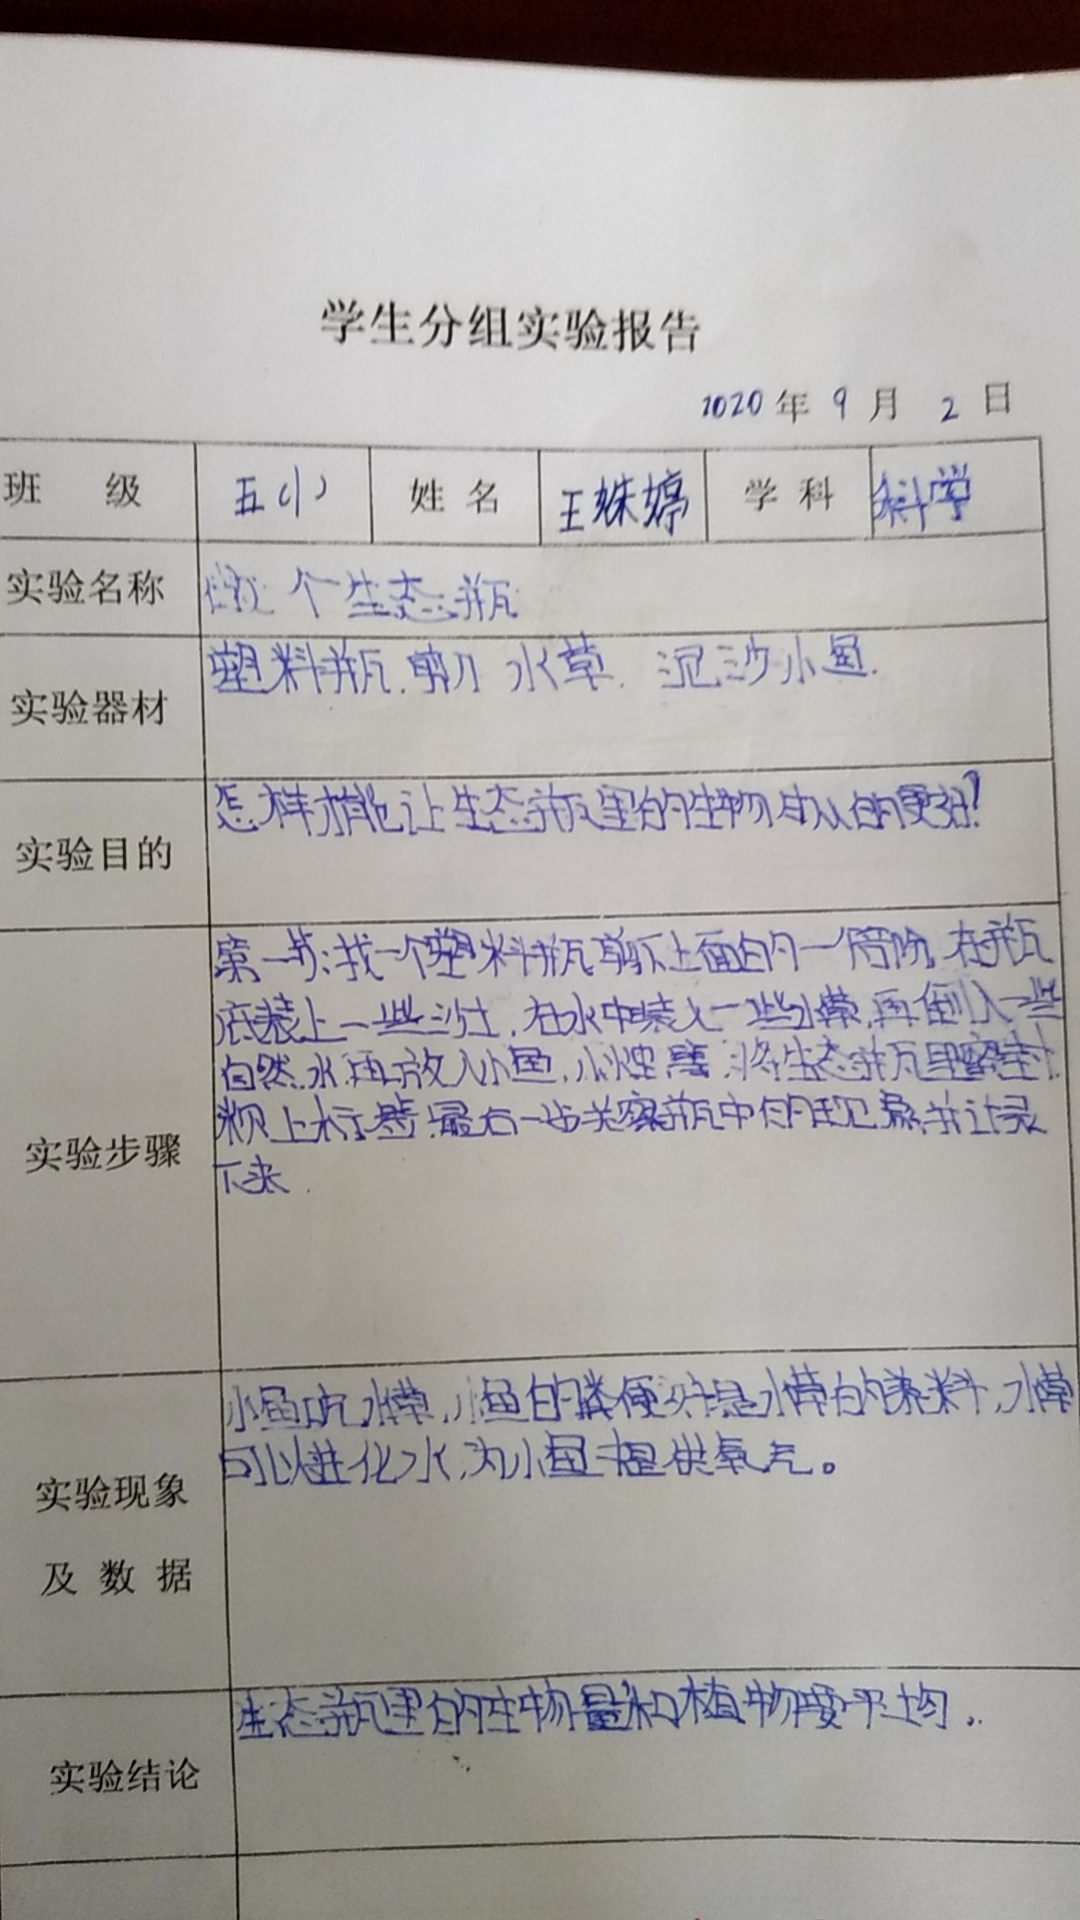 学生分组实验报告
2020年9月2日
班 级 五(1) 姓名 王姝婷 学科 科学
实验名称 做个生态瓶
实验器材 塑料瓶.剪刀 水草. 泥沙小鱼.
实验目的 怎样才能让生态瓶里的生物 的更好?
实验步骤 第一步:找一个塑料瓶剪下上面的一部份,在瓶
底装上一些沙土,在水中装入一些水草,再倒入一些
自然水.再放入小鱼,小 .将生态瓶里密封
贴上标签.最后一步关察瓶中的现象,并记录
下来.
实验现象及数据 小鱼吃水草,小鱼的粪便 是水草的养料,水草
可以进化水,为小鱼提供氧气。
实验结论 生态瓶里的生物量和植物要平均.